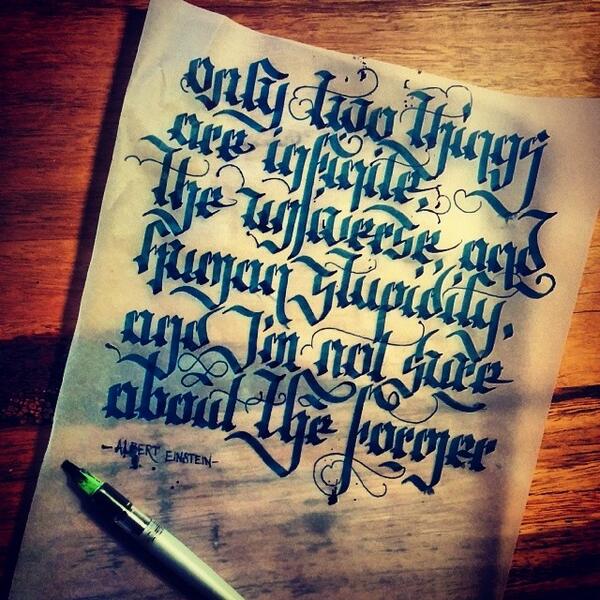 only two things
are infinite:
the universe and
human stupidity,
and I'm not sure
about the former
- ALBERT EINSTEIN -